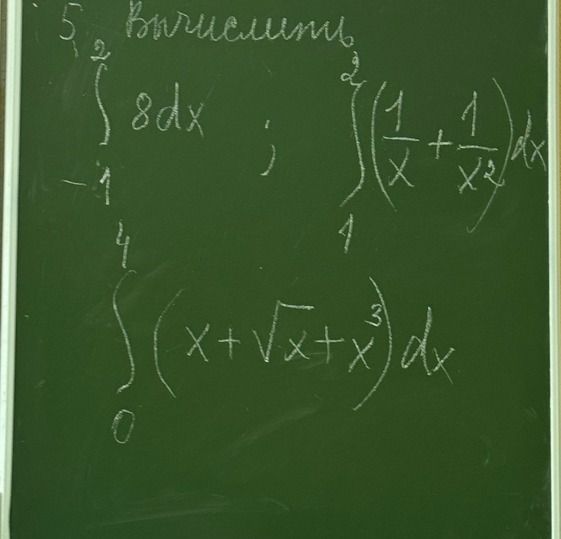 5. Вычислить
∫_{-1}^{2} 8dx ; ∫_{1}^{2} (1/x + 1/x²)dx
∫_{0}^{4} (x+√x+x³)dx